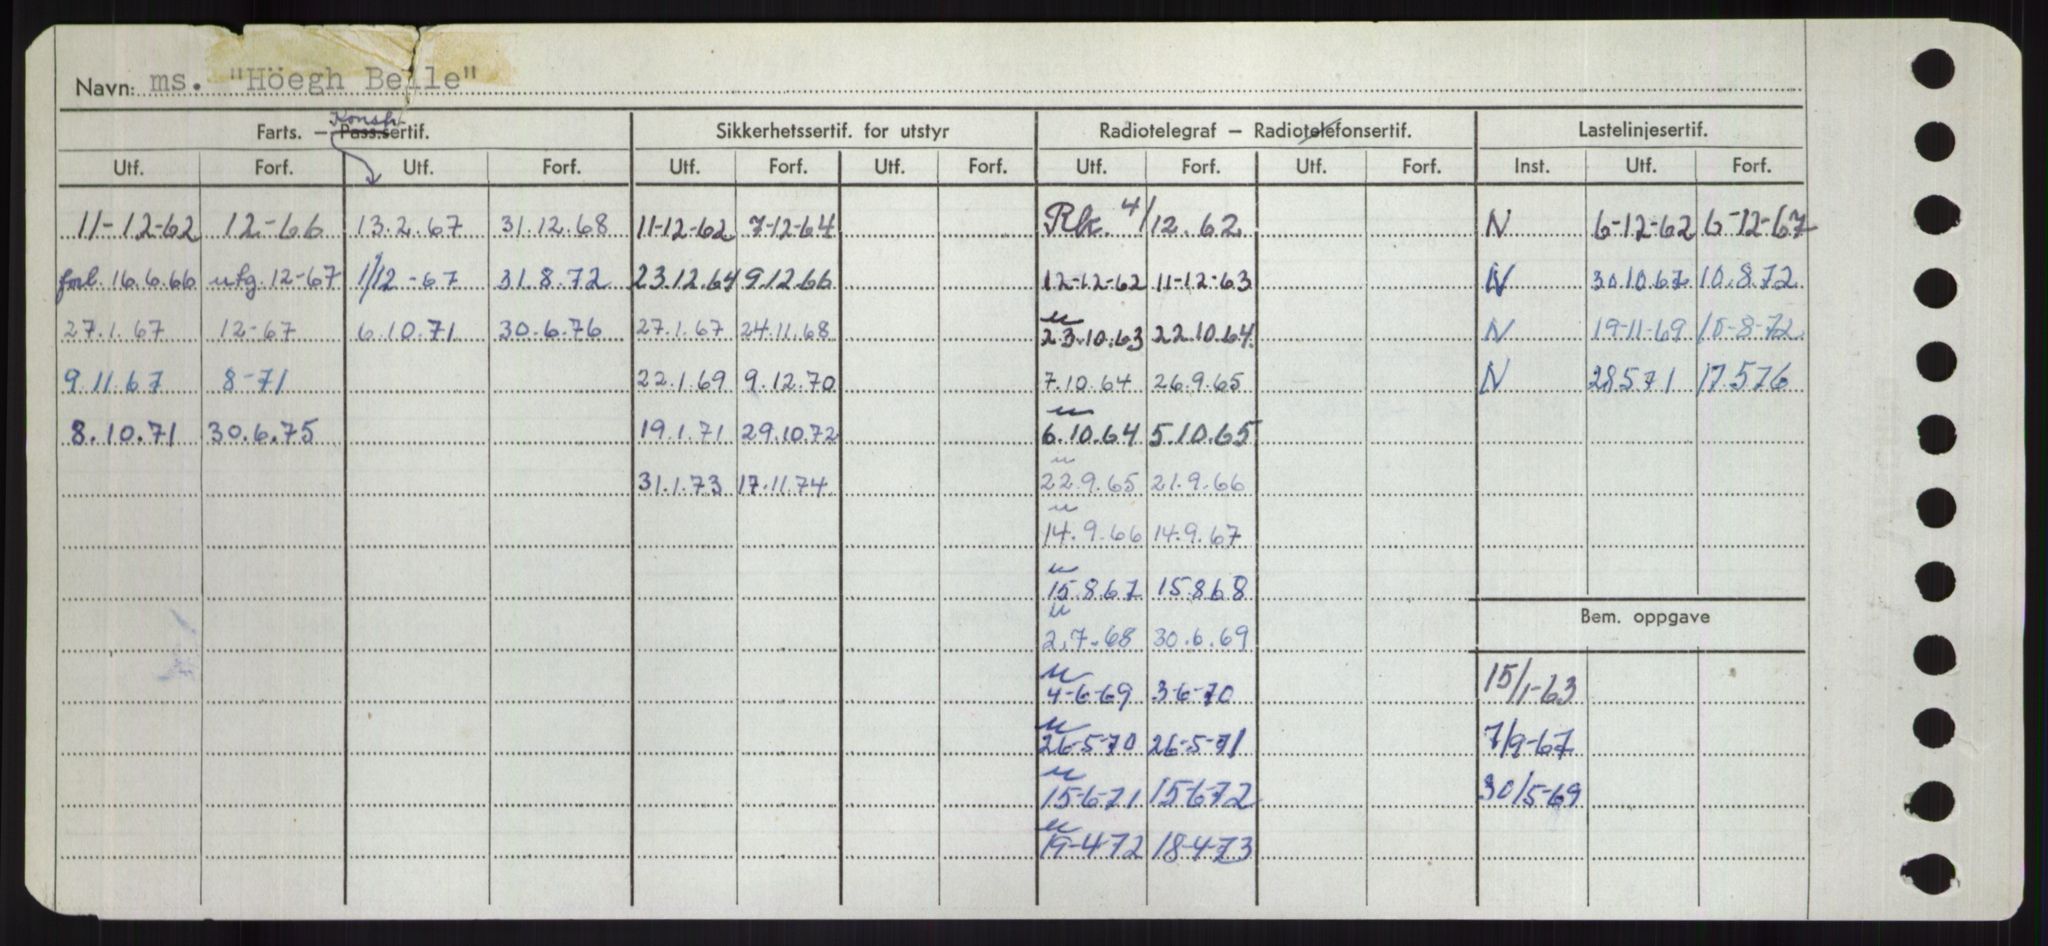 Navn: ms. "Höegh Belle"
Konstr.
Farts. – Pass.sertif. Sikkerhetssertif. for utstyr Radiotelegraf – Radiotelefonsertif. Lastelinjesertif.
Utf. Forf. Utf. Forf. Utf. Forf. Utf. Forf. Utf. Forf. Utf. Forf. Inst. Utf. Forf.
11-12-62 12-66 13.2.67 31.12.68 11-12-62 7-12-64 Rk. 4/12.62 N 6-12-62 6-12-67
forl. 16.6.66 utg. 12-67 1/12-67 31.8.72 23.12.64 9.12.66 12-12-62 11-12-63 N 30.10.67 10.8.72
27.1.67 12-67 6.10.71 30.6.76 27.1.67 24.11.68 u 23.10.63 22.10.64. N 19-11-69 10-8-72
9.11.67 8-71 22.1.69 9.12.70 7.10.64 26.9.65 N 28571 17.576
8.10.71 30.6.75 19.1.71 29.10.72 u 6.10.64 5.10.65
31.1.73 17.11.74 u 22.9.65 21.9.66
u 14.9.66 14.9.67
u 15.8.67 15.868
Bem. oppgave
u 2.7.68 30.6.69
u 4-6-69 3-6-70 15/1-63
u 26-5-70 26-5-71 7/9-67
u 15-6-71 15-6-72 30/5-69
u 19-4-72 18-4-73